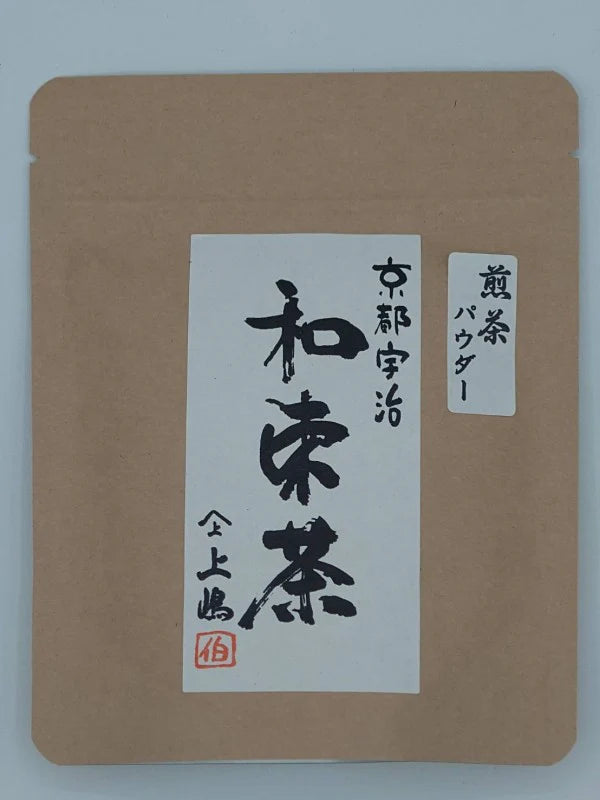 煎茶
パウダー
京都宇治
和束茶
上嶋
伯